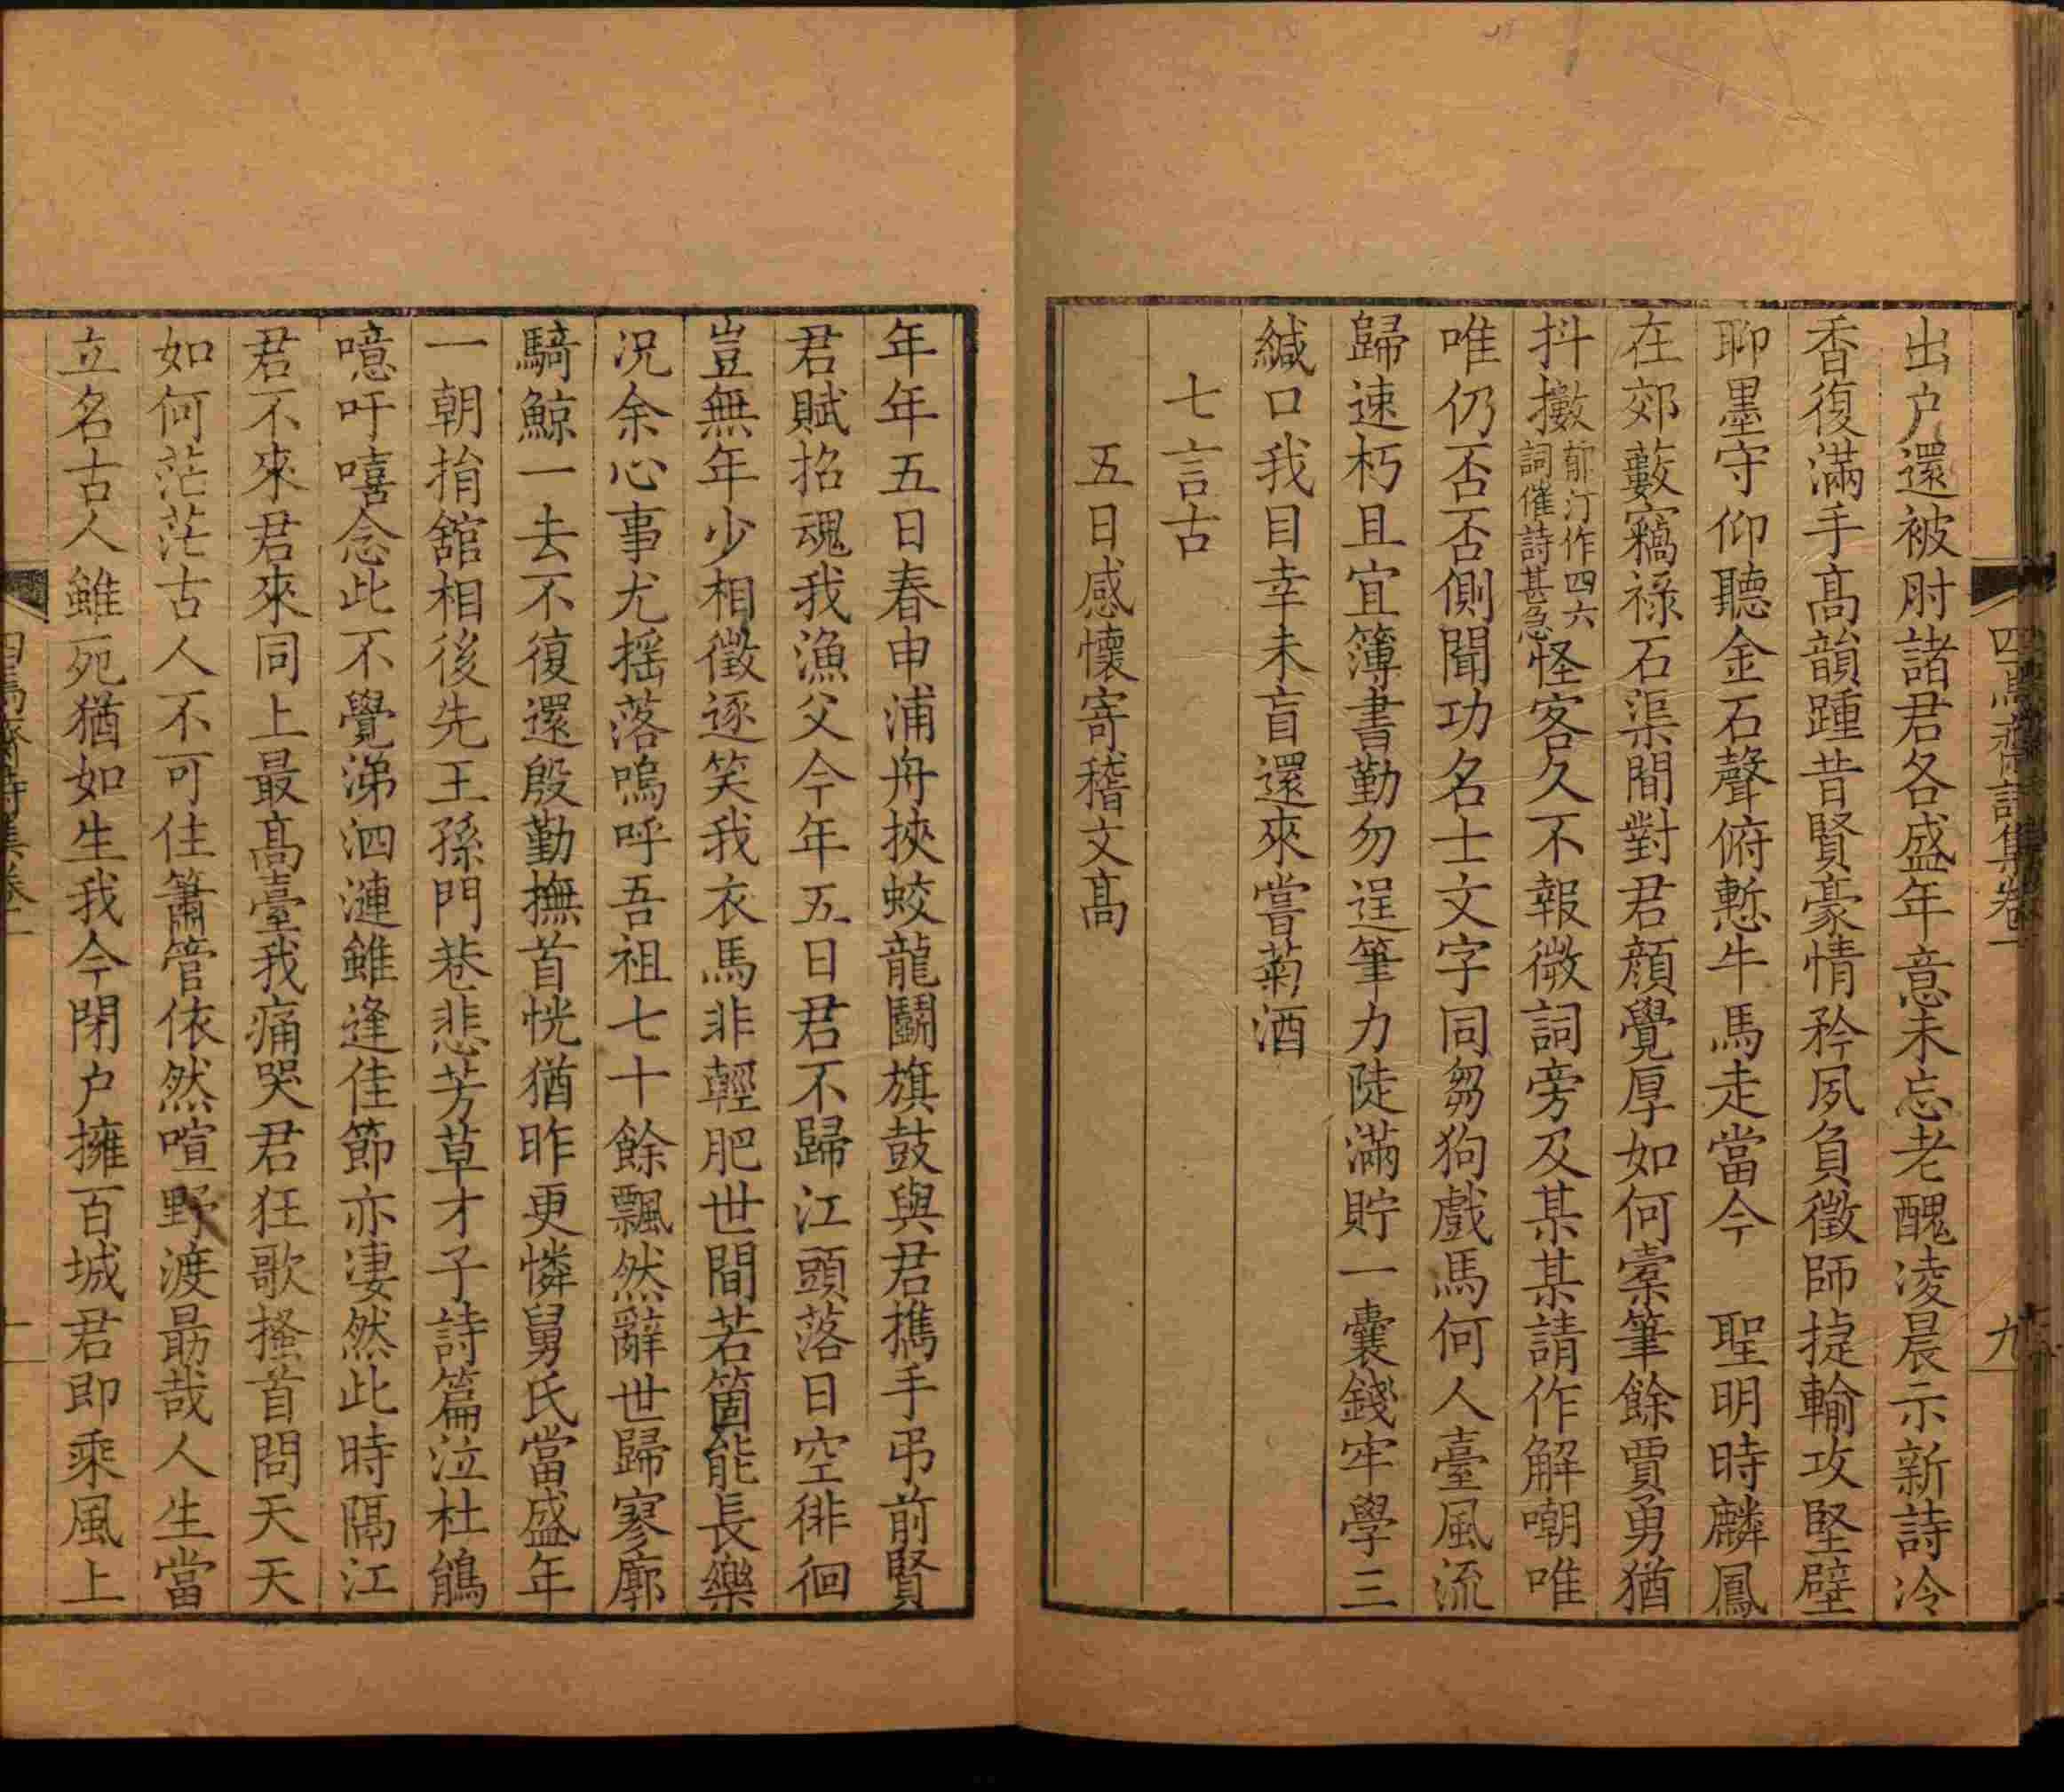 出户還被肘諸君各盛年意未忘老醜凌晨示新詩冷
香復滿手高韻踵昔賢豪情矜夙負徵師捷輸攻堅壁
聊墨守仰聽金石聲俯慙牛馬走當今　聖明時麟鳳
在郊藪竊祿石渠間對君顔覺厚如何橐筆餘賈勇猶
抖擻前汀作四六詞催詩甚急怪客久不報微詞旁及某某請作解嘲唯
唯仍否否側聞功名士文字同芻狗戲馬何人臺風流
歸速朽且宜簿書勤勿逞筆力陡滿貯一囊錢牢學三
緘口我目幸未盲還來嘗菊酒
七言古
五日感懷寄稽文高
年年五日春申浦舟挾蛟龍鬭旗鼓與君攜手弔前賢
君賦招魂我漁父今年五日君不歸江頭落日空徘徊
豈無年少相徵逐笑我衣馬非輕肥世間若箇能長樂
況余心事尤摇落嗚呼吾祖七十餘飄然辭世歸寥廓
騎鯨一去不復還殷勤撫首恍猶昨更憐舅氏當盛年
一朝捐舘相後先王孫門巷悲芳草才子詩篇泣杜鵑
噫吁嘻念此不覺涕泗漣雖逢佳節亦凄然此時隔江
君不來君來同上最高臺我痛哭君狂歌搔首問天天
如何茫茫古人不可住簫管依然喧野渡勗哉人生當
立名古人雖死猶如生我今閉户擁百城君即乘風上
四馬齋詩集卷一
九